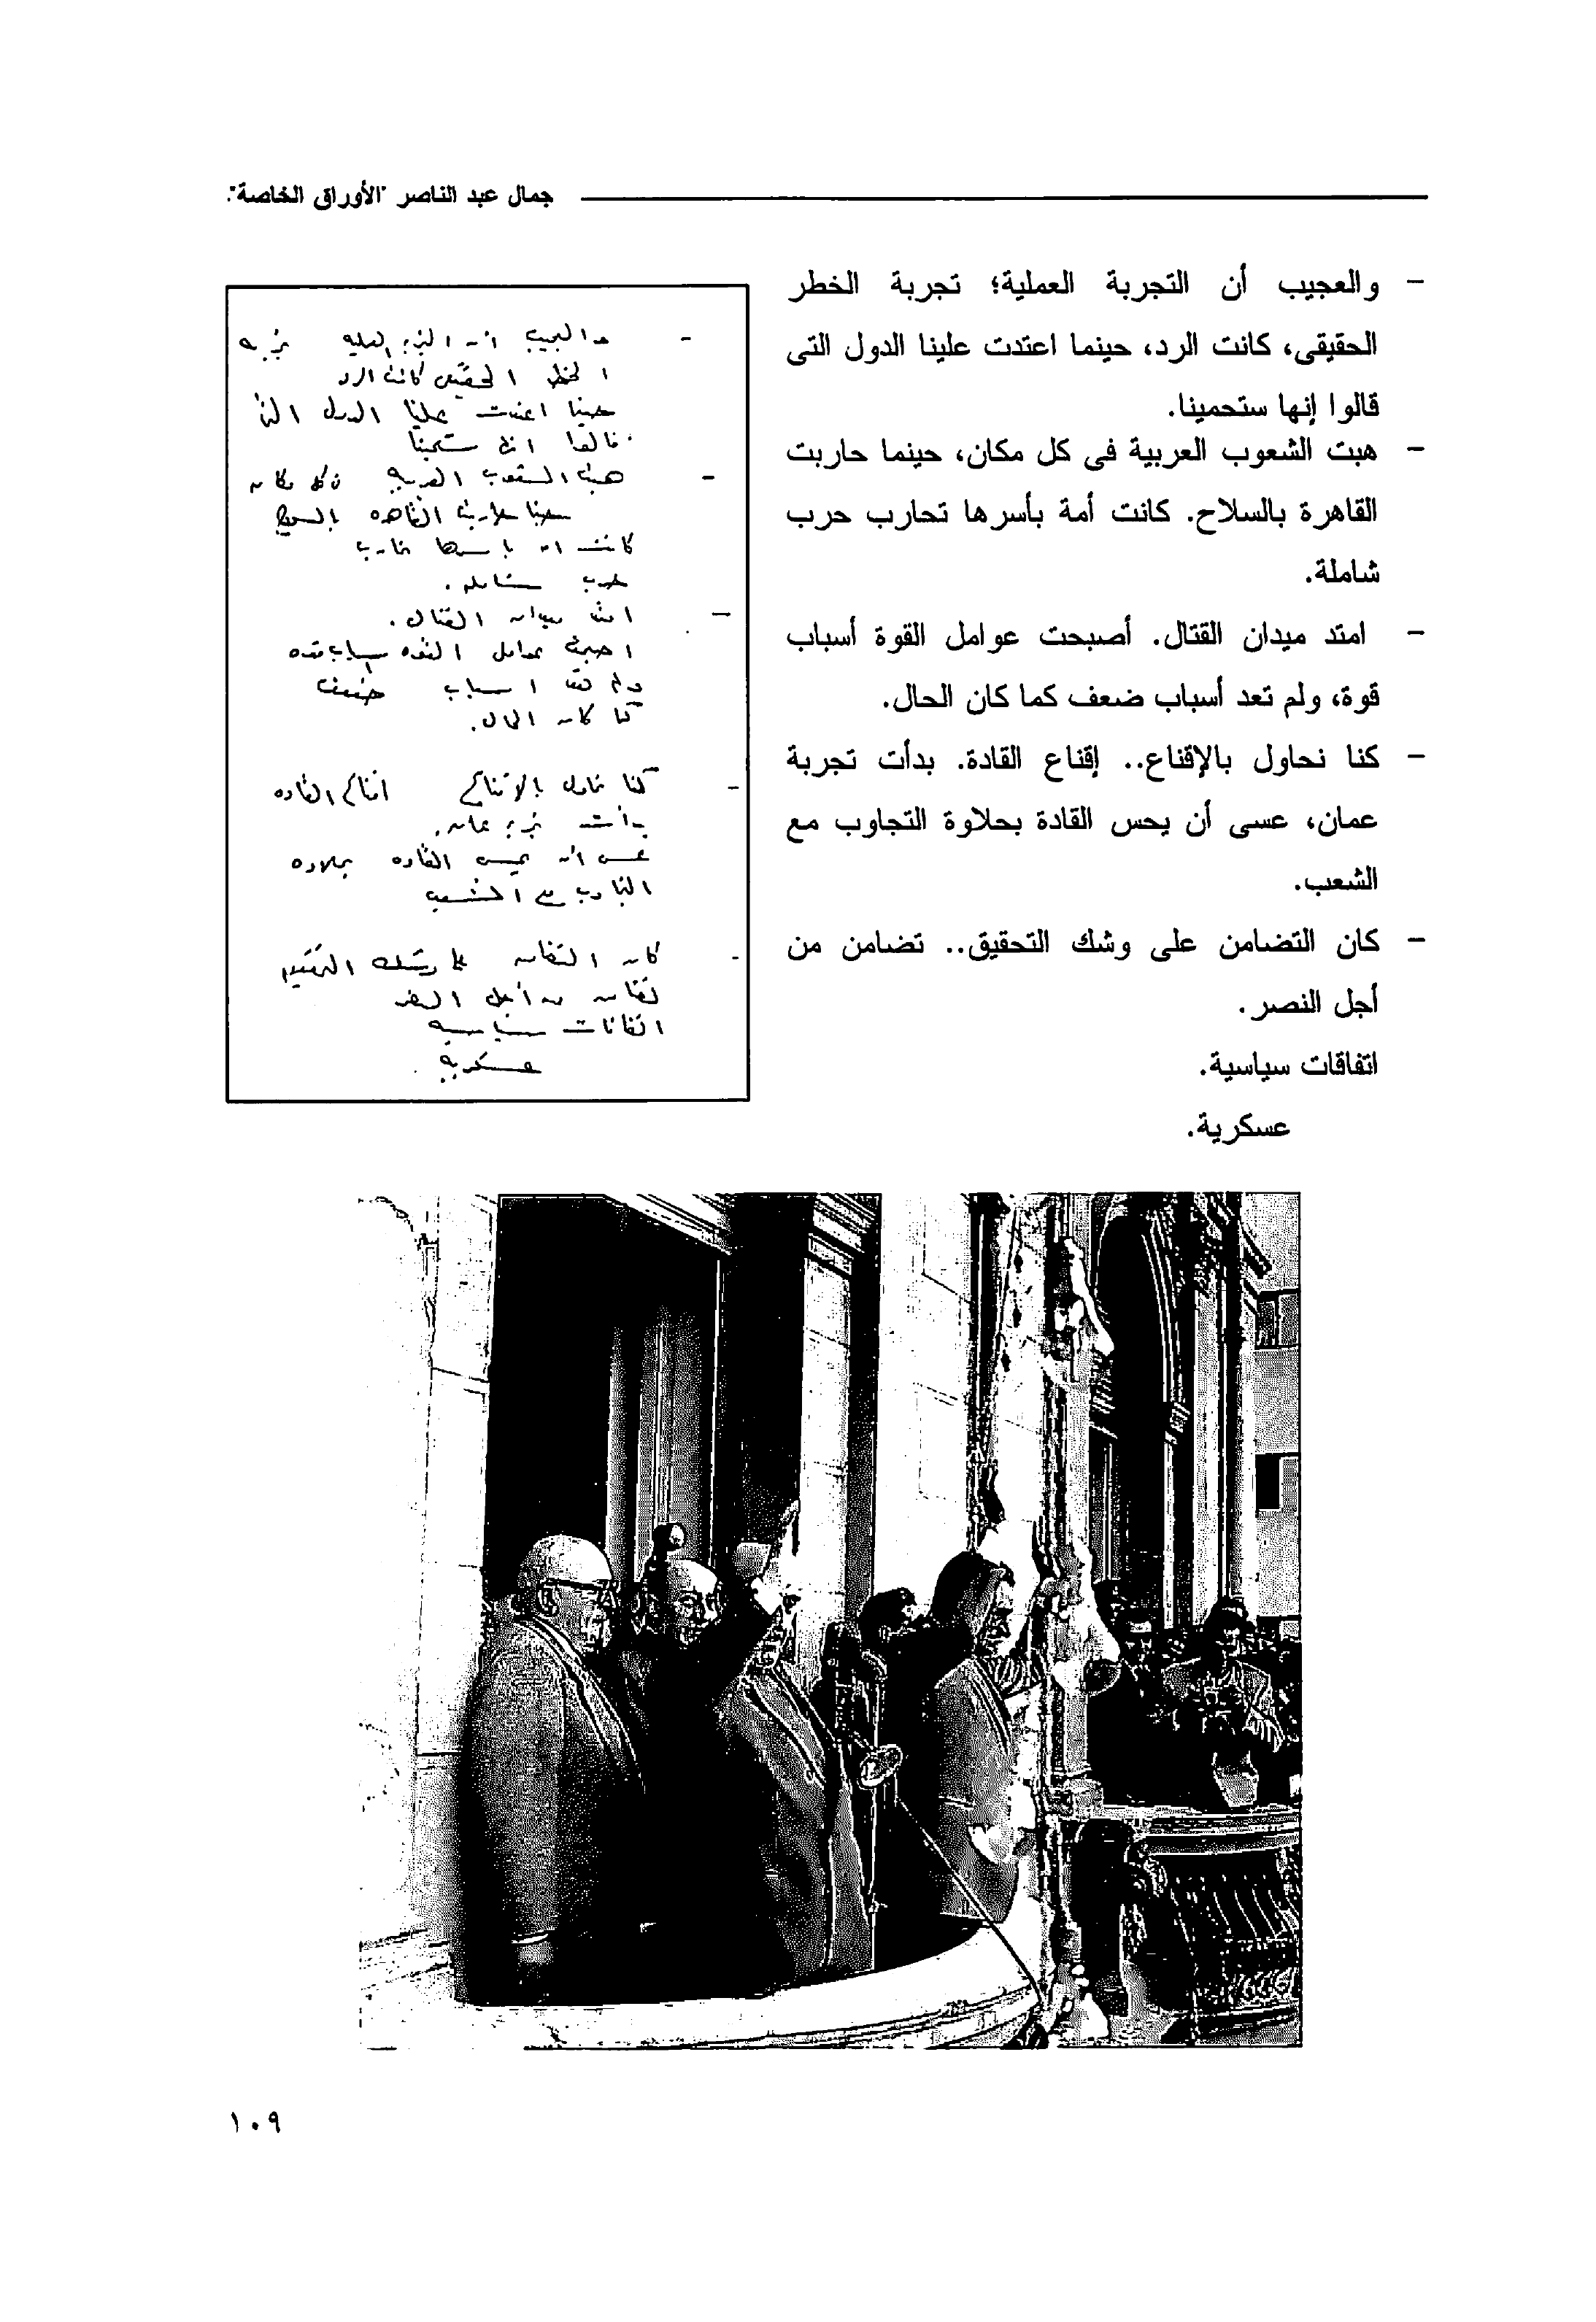 جمال عبد الناصر "الأوراق الخاصة".
- والعجيب أن التجربة العملية؛ تجربة الخطر
الحقيقى، كانت الرد، حينما اعتدت علينا الدول التى
قالوا إنها ستحمينا.
- هبت الشعوب العربية فى كل مكان، حينما حاربت
القاهرة بالسلاح. كانت أمة بأسرها تحارب حرب
شاملة.
- امتد ميدان القتال. أصبحت عوامل القوة أسباب
قوة، ولم تعد أسباب ضعف كما كان الحال.
- كنا نحاول بالإقناع.. إقناع القادة. بدأت تجربة
عمان، عسى أن يحس القادة بحلاوة التجاوب مع
الشعب.
- كان التضامن على وشك التحقيق.. تضامن من
أجل النصر.
اتفاقات سياسية.
عسكرية.
- والعجيب ان التجربه العمليه تجربه
الخطر الحقيقى كانت الرد
حينما اعتدت علينا الدول التى
قالوا انها ستحمينا
- هبت الشعوب العربيه فى كل مكان
حينما حاربت القاهره بالسلاح
كانت امه باسرها تحارب
حرب شامله .
- امتد ميدان القتال .
اصبحت عوامل القوه اسباب قوه
ولم تعد اسباب ضعف
كما كان الحال .
- كنا نحاول بالإقناع اقناع القاده
بدأت تجربه عمان .
عسى أن يحس القاده بحلاوه
التجاوب مع الشعب
- كان التضامن على وشك التحقيق
تضامن من أجل النصر
اتفاقات سياسيه
عسكريه .
١٠٩